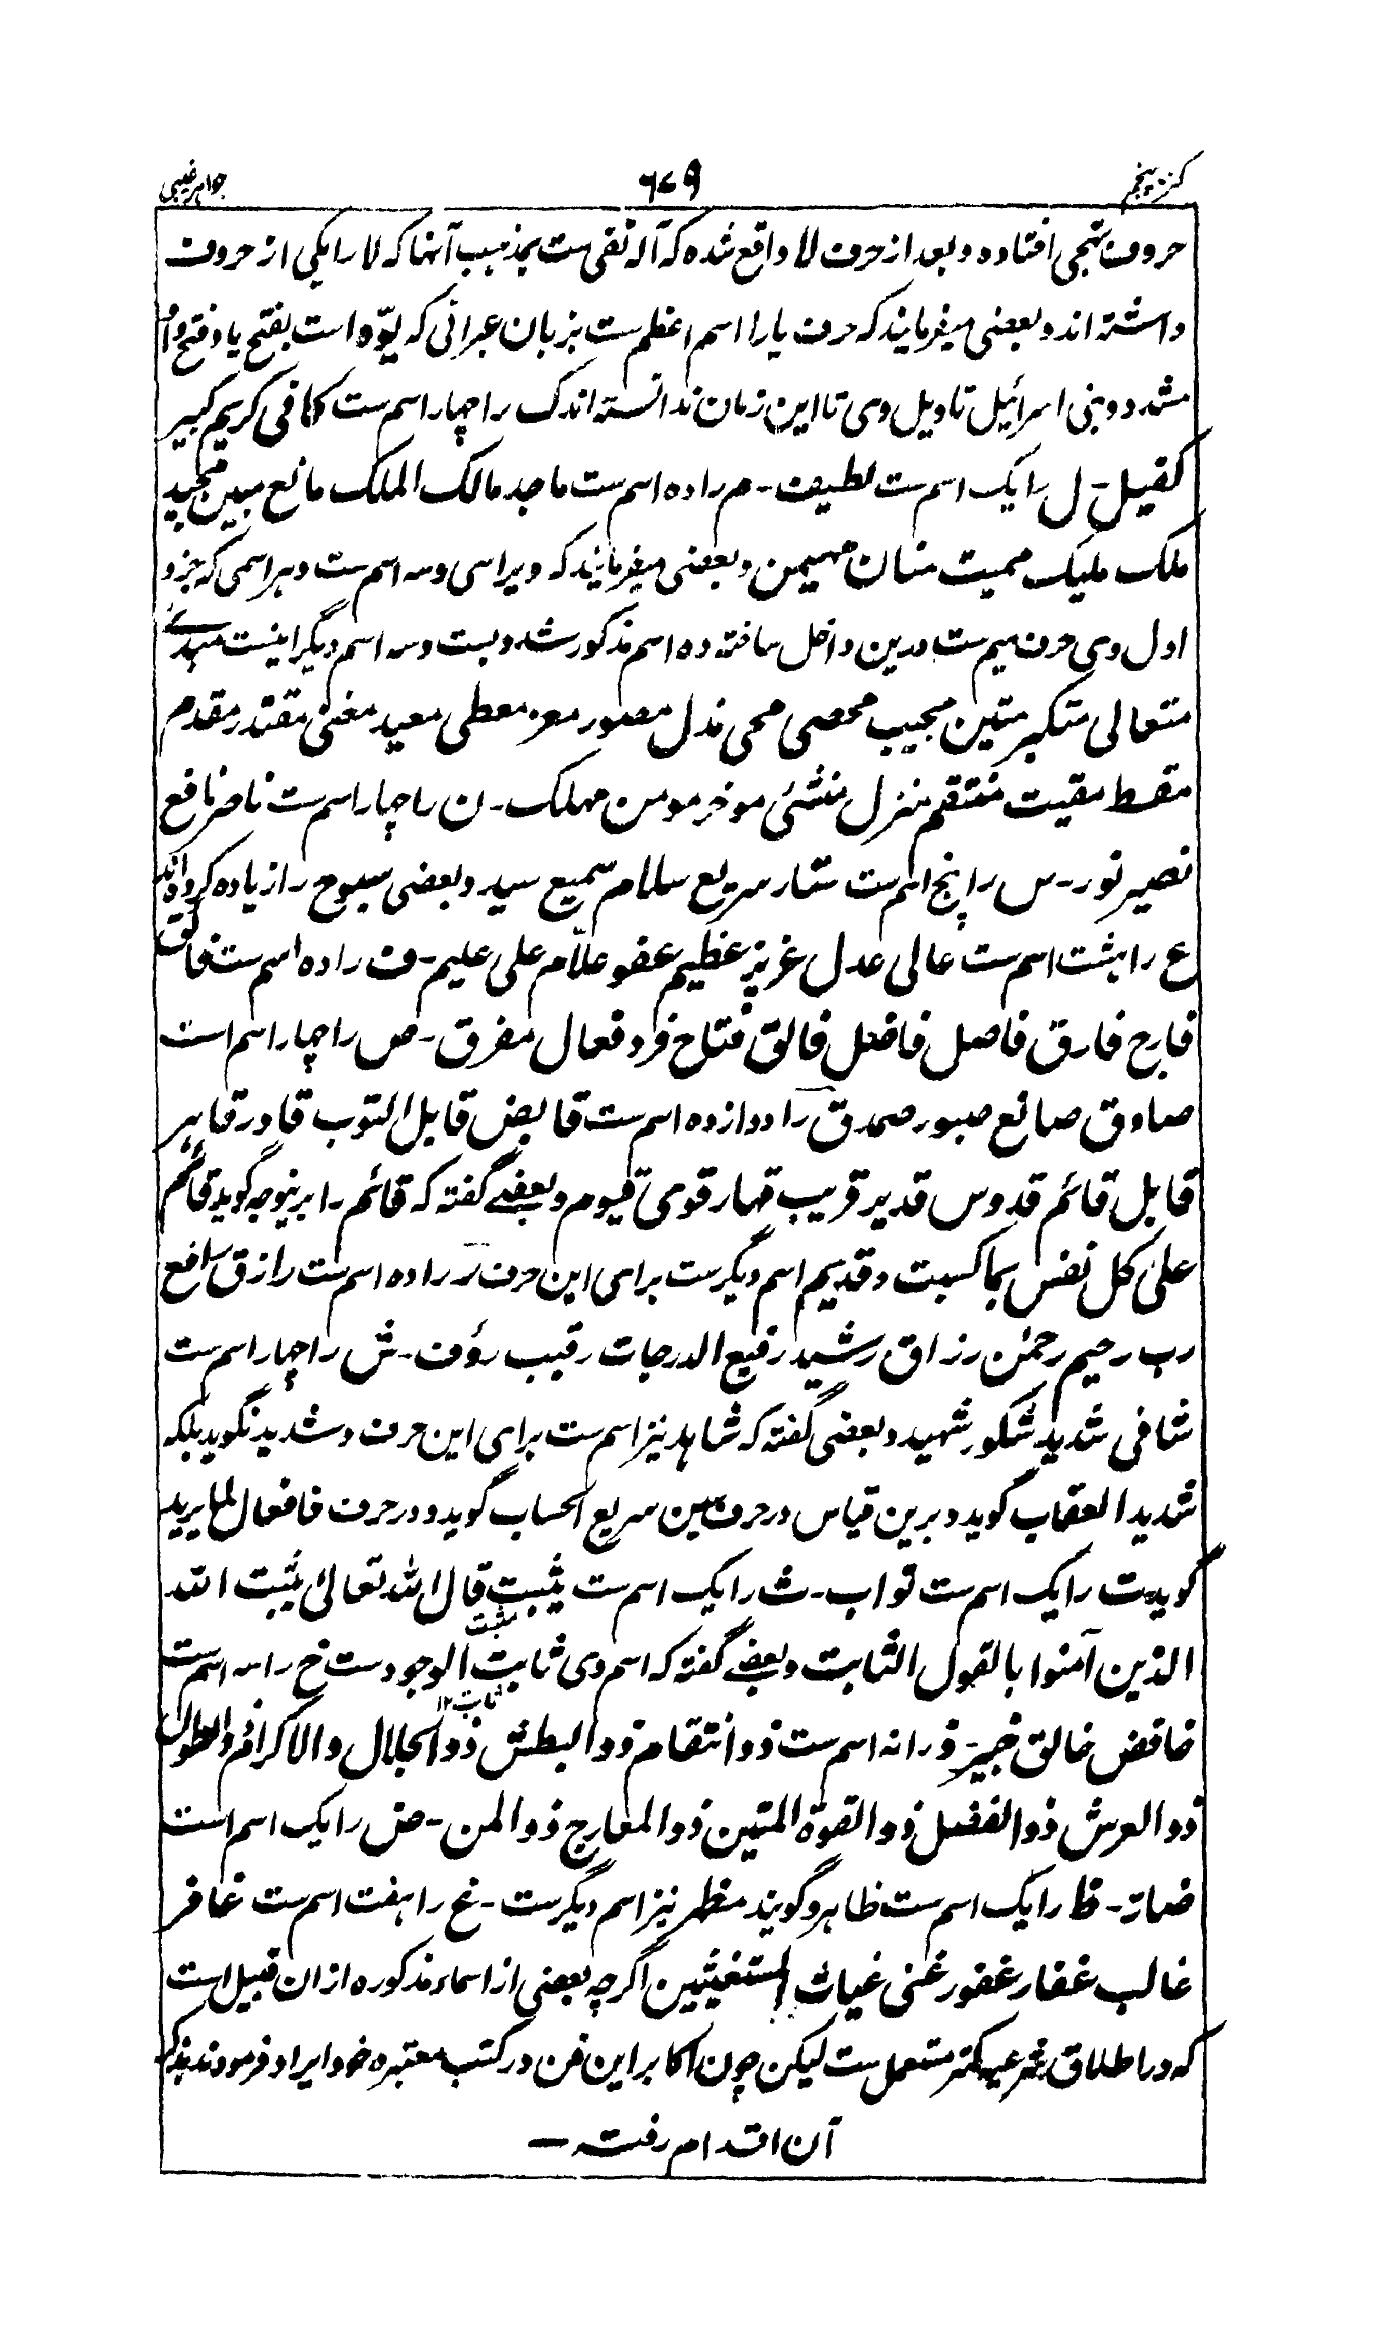 کنز پنجم
۶۷۹
جواهر غیبی
حروف تهجی افتاده و بعد از حرف لا واقع شده که آله نفی ست بمذهب آنها که لا را یکی از حروف
داشته اند و بعضی میفرمایند که حرف یا را اسم اعظم ست بزبان عبرانی که یوّه است بفتح یا و فتح واو
مشدد و بنی اسرائیل تاویل وی تا این زمان ندانسته اند ک را چهار اسم ست کافی کریم کبیر
کفیل - ل را یک اسم ست لطیف - م را ده اسم ست ماجد مالک الملک مانع مبین مجید
ملک ملیک ممیت منان مهیمن و بعضی میفرمایند که ویرا سی و سه اسم ست و هر اسمی که جزو
اول وی حرف میم ست درین داخل ساخته ده اسم مذکور شد و بست و سه اسم دیگر اینست مبدئ
متعالی متکبر متین مجیب محصی محی مذل مصور معز معطی معید مغنی مقتدر مقدم
مقسط مقیت منتقم منزل منشئ موخر مومن مهلک - ن را چهار اسم ست ناصر نافع
نصیر نور - س را پنج اسم ست ستار سریع سلام سمیع سید و بعضی سبوح را زیاده کرده اند
ع را هشت اسم ست عالی عدل عزیز عظیم عفو علّام علی علیم - ف را ده اسم ست فالق
فارج فارق فاصل فاضل فالق فتاح فرد فعال مفرق - ص را چهار اسم است
صادق صانع صبور صمد ق را دوازده اسم ست قابض قابل التوب قادر قاهر
قابل قائم قدوس قدیر قریب قهار قوی قیوم و بعضے گفته که قائم را برینوجه گوید قائم
علی کل نفس بما کسبت و قدیم اسم دیگر ست برای این حرف ر را ده اسم ست رازق رافع
رب رحیم رحمٰن رزاق رشید رفیع الدرجات رقیب رؤف - ش را چهار اسم ست
شافی شدید شکور شهید و بعضی گفته که شاهد نیز اسم ست برای این حرف و شدید نگوید بلکه
شدید العقاب گوید و برین قیاس در حرف سین سریع الحساب گوید و در حرف فا فعال لما یرید
گوید ت را یک اسم ست تواب - ث را یک اسم ست یثبت قال الله تعالیٰ یثبت الله
مثبت
الذین آمنوا بالقول الثابت و بعضے گفته که اسم وی ثابت الوجود ست خ را سه اسم ست
ثابت ۱۲
خافض خالق خبیر - ذ را نه اسم ست ذو انتقام ذو البطش ذو الجلال والاکرام ذو الطول
ذو العرش ذو الفضل ذو القوة المتین ذو المعارج ذو المن - ض را یک اسم است
ضار - ظ را یک اسم ست ظاهر و گویند مظهر نیز اسم دیگر ست - غ را هفت اسم ست غافر
غالب غفار غفور غنی غیاث المستغیثین اگرچه بعضی از اسماء مذکوره ازان قبیل است
که در اطلاق شرعیه کمتر مستعمل ست لیکن چون اکابر این فن در کتب معتبره خود ایراد فرمودند
آن اقدام رفته —